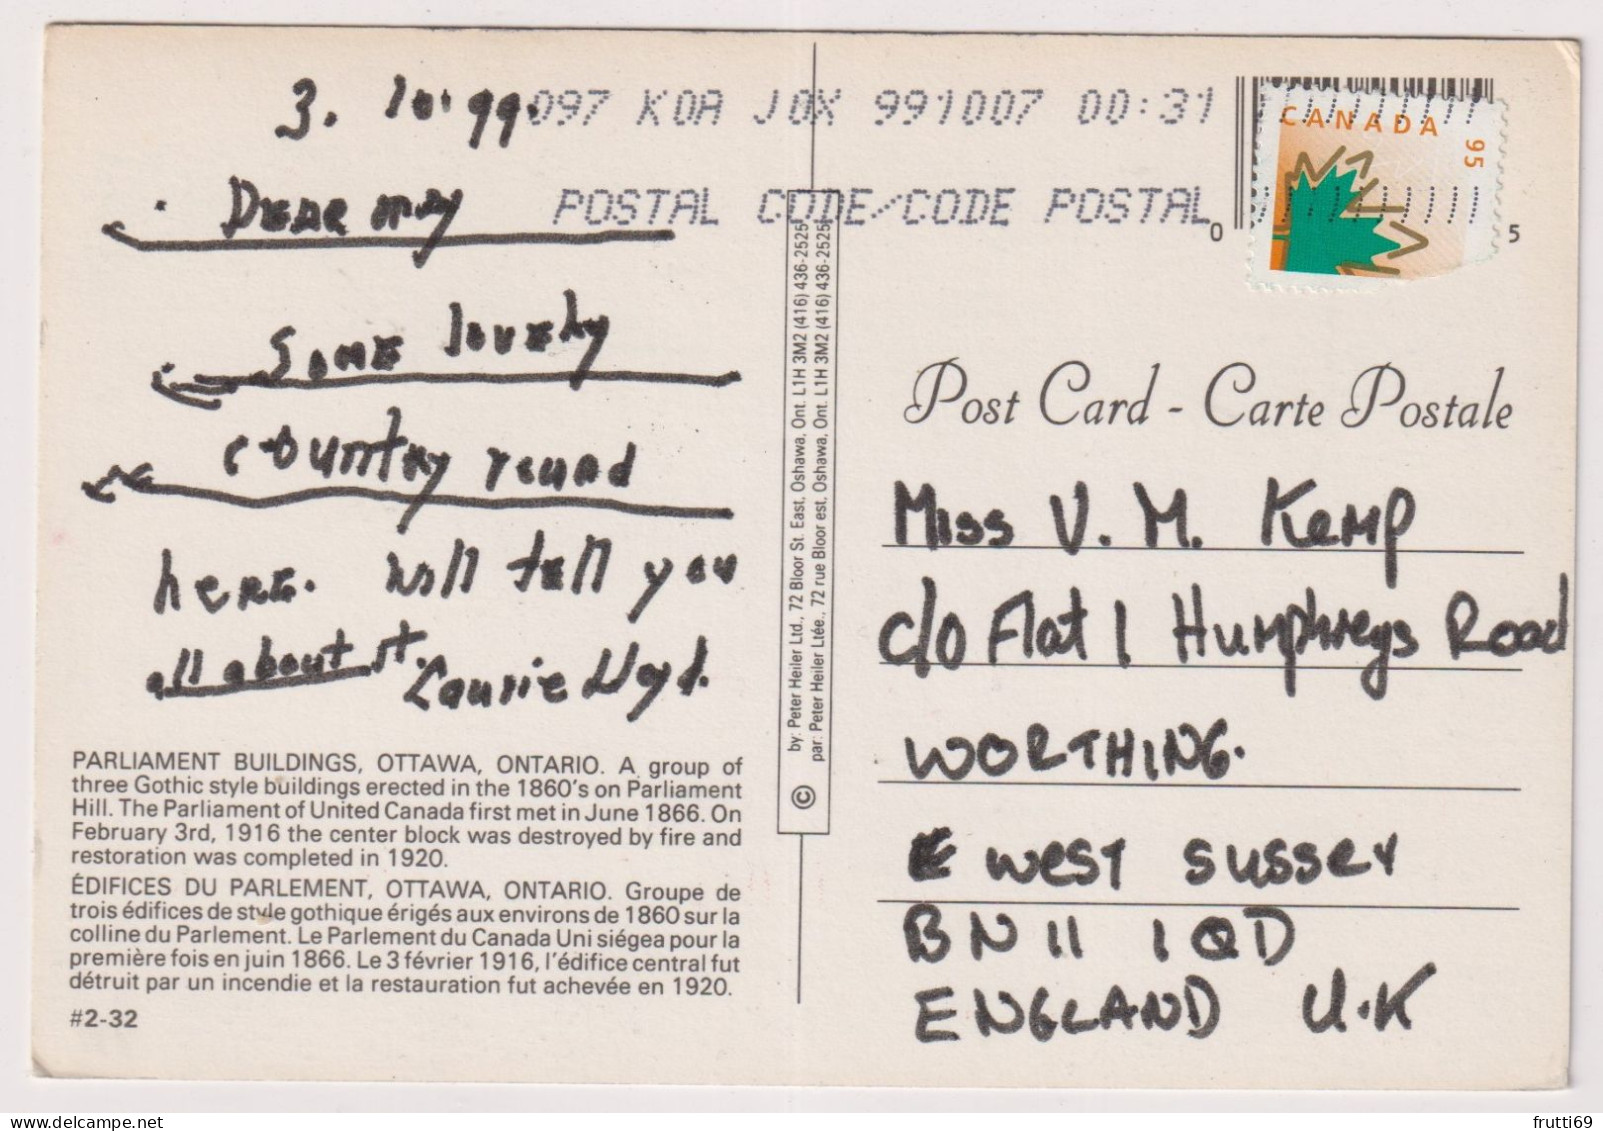 3. 10.99.
097 K0A J0X 991007 00:31
POSTAL CODE/CODE POSTAL
CANADA 95
0 5
DEAR my
SOME lovely
country round
here. will tell you
all about it.
Laurie Lloyd.
PARLIAMENT BUILDINGS, OTTAWA, ONTARIO. A group of
three Gothic style buildings erected in the 1860's on Parliament
Hill. The Parliament of United Canada first met in June 1866. On
February 3rd, 1916 the center block was destroyed by fire and
restoration was completed in 1920.
ÉDIFICES DU PARLEMENT, OTTAWA, ONTARIO. Groupe de
trois édifices de style gothique érigés aux environs de 1860 sur la
colline du Parlement. Le Parlement du Canada Uni siégea pour la
première fois en juin 1866. Le 3 février 1916, l'édifice central fut
détruit par un incendie et la restauration fut achevée en 1920.
#2-32
© by: Peter Heiler Ltd., 72 Bloor St. East, Oshawa, Ont. L1H 3M2 (416) 436-2525
par: Peter Heiler Ltée., 72 rue Bloor est, Oshawa, Ont. L1H 3M2 (416) 436-2525
Post Card - Carte Postale
Miss V. M. Kemp
c/o Flat 1 Humphreys Road
WORTHING.
WEST SUSSEX
BN11 1QD
ENGLAND U.K
frutti69